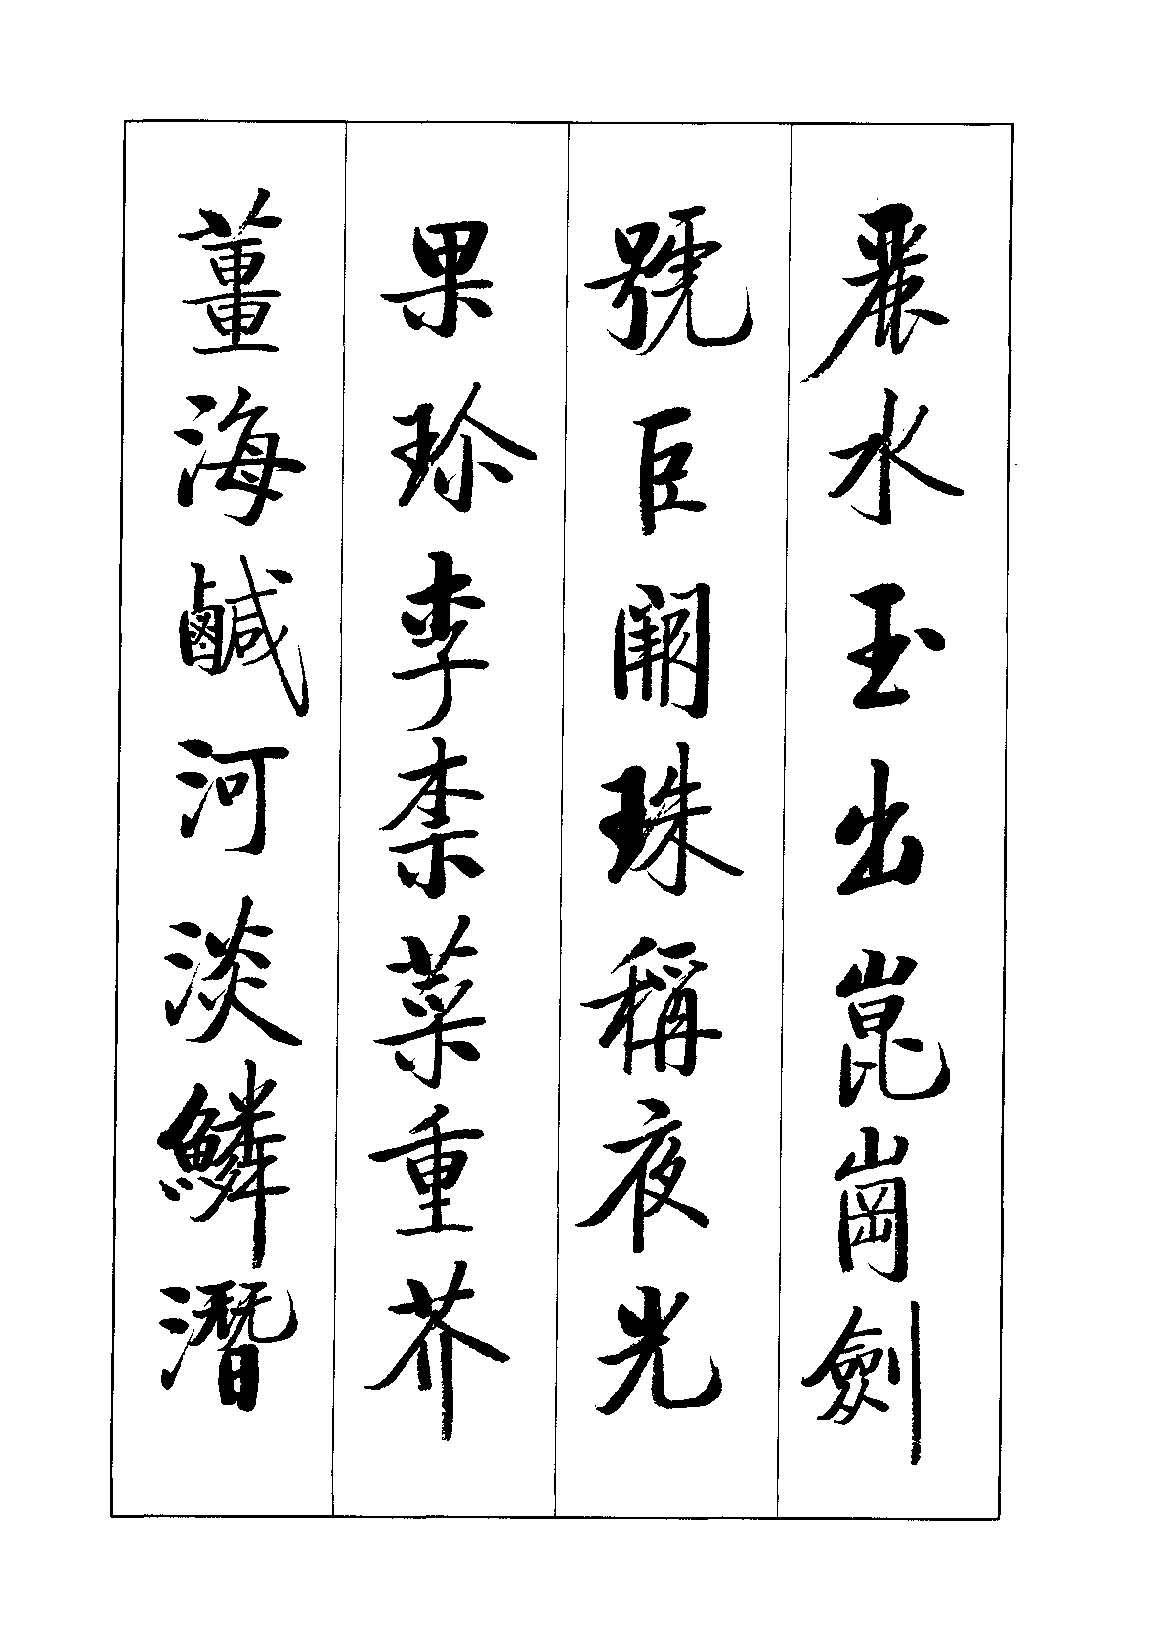 麗水玉出崑崗劍
號巨闕珠稱夜光
果珍李柰菜重芥
薑海鹹河淡鱗潛